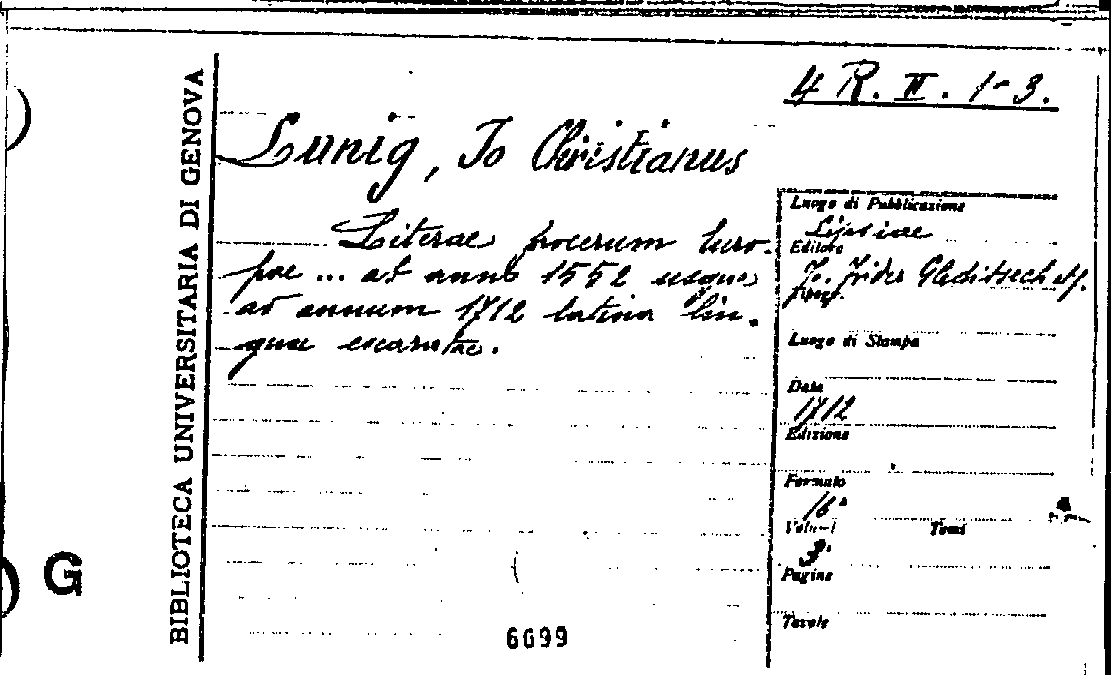 4 R. II. 1-3.
BIBLIOTECA UNIVERSITARIA DI GENOVA
Lunig, Jo Christianus
Literae procerum Euro-
pae ... ab anno 1552 usque
ad annum 1712 latina lin-
gua exaratae.
Luogo di Pubblicazione
Lipsiae
Editore
Jo. Frider Gleditsech
Tipogr.
Luogo di Stampa
Data
1712
Edizione
Formato
16°
Volumi Tomi
3
Pagine
Tavole
G
6699